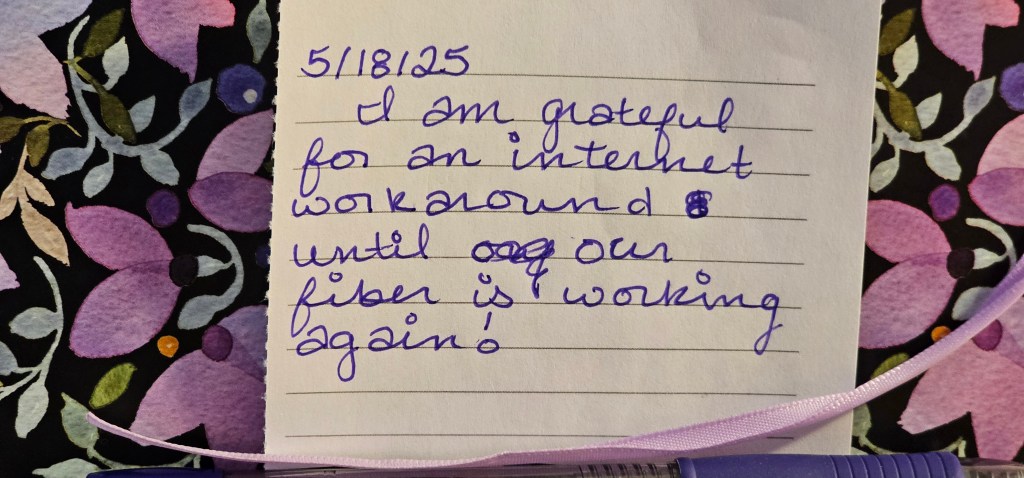 5/18/25
I am grateful
for an internet
workaround
until our
fiber is working
again!